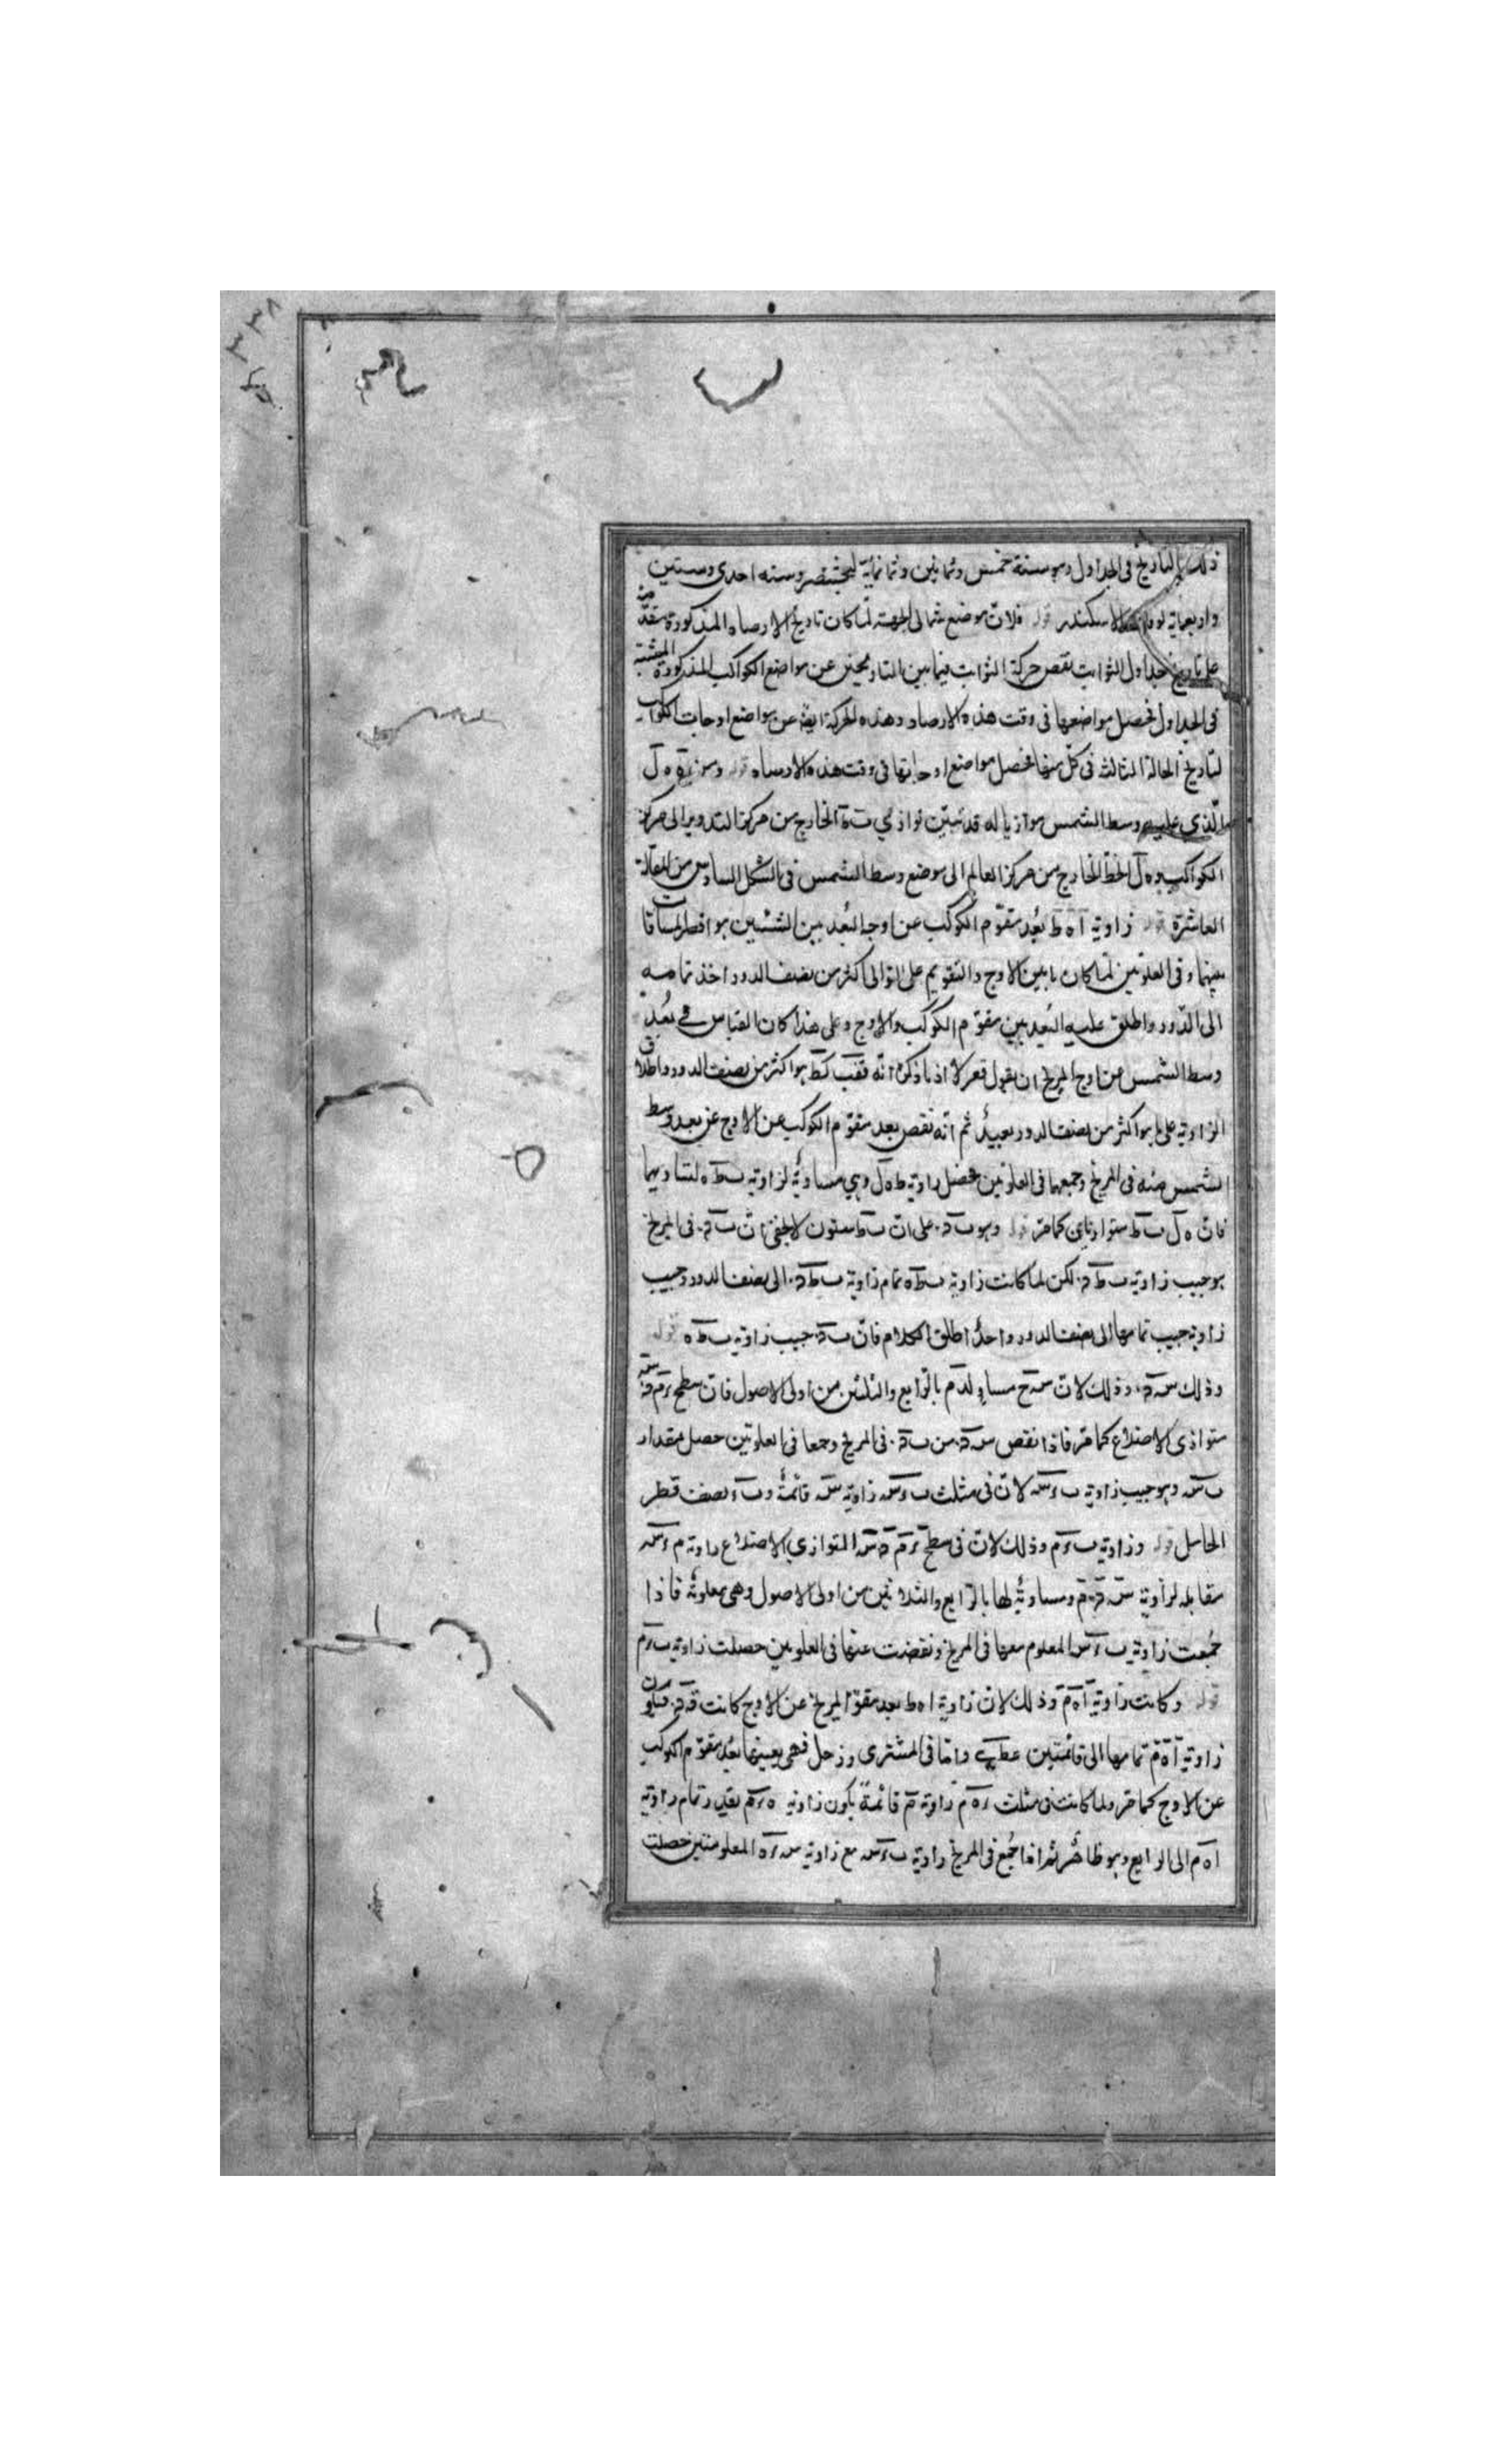 ٣٣٨
ذلك التاريخ فى الجداول وهو سنة خمس وثمانين وثمانمائة لبختنصر وسنه احدى وستين
واربعماية لوفاة الاسكندر قوله فلان موضع شمالى الجبهة لما كان تاريخ الارصاد المذكورة متقدمة
على تاريخ جداول الثوابت نقص حركة الثوابت فيما بين التاريخين عن مواضع الكواكب المذكورة المثبتة
فى الجداول فحصل مواضعها فى وقت هذه الارصاد وهذه الحركة ايضا عن مواضع اوجات الكواكب
لتاريخ الحالة الثالث فى كل منها فحصل مواضع اوجاتها فى وقت هذه الارصاد قوله ومن ه ل
الذى عليه وسط الشمس موازيا له قد تبين توازى الخارج من مركز التدوير الى مركز
الكواكب و ه ل الخط الخارج من مركز العالم الى موضع وسط الشمس فى الشكل السادس من المقالة
العاشرة قوله زاوية ا ه ط بعد مقوم الكوكب عن اوجه البعد بين الشيئين هو اقصر المسافات
بينهما وفى العلويين لما كان ما بين الاوج والتقويم على التوالى اكثر من نصف الدور اخذ تمامه
الى الدور واطلق عليه البعد بين مقوم الكوكب والاوج وعلى هذا كان القياس فى بعد
وسط الشمس عن اوج المريخ ان يقول قعر لا اذ ما ذكره انه قفب كط هو اكثر من نصف الدور واطلاق
الزاوية على ما هو اكثر من نصف الدور بعيد ثم انه نقص بعد مقوم الكوكب عن الاوج عن بعد وسط
الشمس منه فى المريخ وجمعهما فى العلويين فحصل زاوية ط ه ل وهى مساوية لزاوية ب ط ه لتساويهما
فان ه ل ب ط متوازيان كما مر قوله وهو ب د على ان ب ط ستون لا يخفى ان ب د فى المريخ
هو جيب زاوية ب ط د لكن لما كانت زاوية ب ط ه تمام زاوية ب ط د الى نصف الدور وجيب
زاوية جيب تمامها الى نصف الدور واحدا اطلق الكلام فان ب د جيب زاوية ب ط ه قوله
وذلك س د وذلك لان س ح مساو لد م بالرابع والثلثين من اولى الاصول فان سطح
متوازى الاضلاع كما مر فاذا نقص س د من ب د فى المريخ وجمعا فى العلويين حصل مقدار
ب س وهو جيب زاوية ب ء س لان فى مثلث ب ء س زاوية س قائمة و ب ء نصف قطر
الحامل قوله وزاوية ب ء م وذلك لان فى سطح المتوازى الاضلاع زاوية م ء س
مقابله لزاوية ومساوية لها بالرابع والثلاثين من اولى الاصول وهى معلومة فاذا
جمعت زاوية ب ء س المعلوم معها فى المريخ ونقصت عنها فى العلويين حصلت زاوية ب ء م
قوله وكانت زاوية ا ه م وذلك لان زاوية ا ه ط بعد مقوم المريخ عن الاوج كانت فيكون
زاوية ا ه م تمامها الى قائمتين واما فى المشترى وزحل فهى بعينها بعد مقوم الكوكب
عن الاوج كما مر ولما كانت فى مثلث ء ه م زاوية م قائمة يكون زاوية ه ء م بقدر تمام زاوية
ا ه م الى الرابع وهو ظاهر ثم اذا جمع فى المريخ زاوية ب ء س مع زاوية س ء ه المعلومتين حصلت